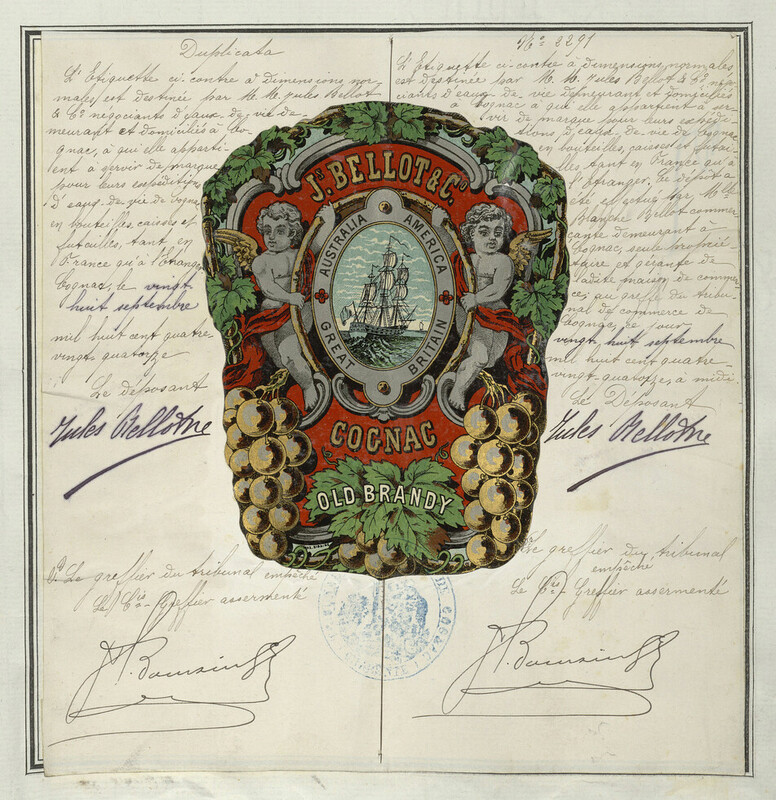 Duplicata
L'Etiquette ci-contre à dimensions nor-
males est destinée par M.M. Jules Bellot
& Cie négociants d'eaux-de-vie de-
meurant et domiciliés à Co-
gnac, à qui elle apparti-
ent à servir de marque
pour leurs expéditions
d'eaux-de-vie de Cognac
en bouteilles, caisses et
futailles, tant en
France qu'à l'Etranger
Cognac, le vingt
huit septembre
mil huit cent quatre
vingt quatorze
Le déposant
Jules Bellot & Cie
Le greffier du tribunal empêché
Le Cis-Greffier assermenté
No 2291
L'Etiquette ci-contre à dimensions normales
est destinée par M.M. Jules Bellot & Cie négo-
ciants d'eaux-de-vie demeurant et domiciliés
à Cognac à qui elle appartient à ser-
vir de marque pour leurs expédi-
tions d'eaux-de-vie de Cognac
en bouteilles, caisses et futail-
les, tant en France qu'à
l'Etranger. Le dépôt a
été effectué par Mlle
Blanche Bellot commer-
çante demeurant à
Cognac, seule proprié-
taire et gérante de
ladite maison de commer-
ce, au greffe du tribu-
nal de commerce de
Cognac, ce jour
vingt huit septembre
mil huit cent quatre-
vingt-quatorze, à midi
Le Déposant
Jules Bellot & Cie
Le greffier du tribunal
empêché
Le Cis-Greffier assermenté
Js. BELLOT & Co.
AUSTRALIA AMERICA
GREAT BRITAIN
COGNAC
OLD BRANDY